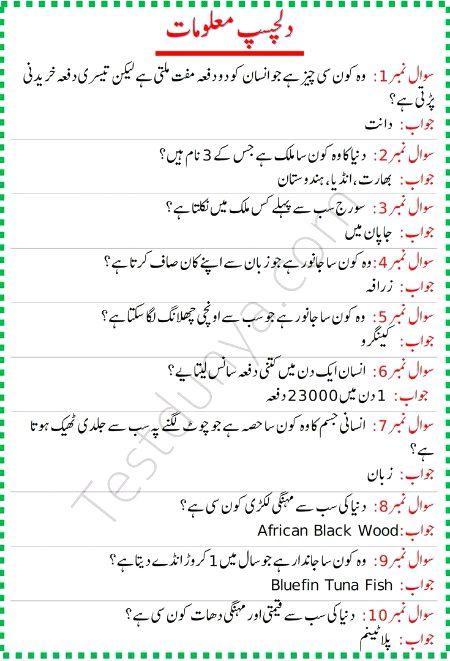 دلچسپ معلومات
سوال نمبر 1: وہ کون سی چیز ہے جو انسان کو دو دفعہ مفت ملتی ہے لیکن تیسری دفعہ خریدنی
پڑتی ہے؟
جواب: دانت
سوال نمبر 2: دنیا کا وہ کون سا ملک ہے جس کے 3 نام ہیں؟
جواب: بھارت، انڈیا، ہندوستان
سوال نمبر 3: سورج سب سے پہلے کس ملک میں نکلتا ہے؟
جواب: جاپان میں
سوال نمبر 4: وہ کون سا جانور ہے جو زبان سے اپنے کان صاف کرتا ہے؟
جواب: زرافہ
سوال نمبر 5: وہ کون سا جانور ہے جو سب سے اونچی چھلانگ لگا سکتا ہے؟
جواب: کینگرو
سوال نمبر 6: انسان ایک دن میں کتنی دفعہ سانس لیتا ہے؟
جواب: 1 دن میں 23000 دفعہ
سوال نمبر 7: انسانی جسم کا وہ کون سا حصہ ہے جو چوٹ لگنے پہ سب سے جلدی ٹھیک ہوتا
ہے؟
جواب: زبان
سوال نمبر 8: دنیا کی سب سے مہنگی لکڑی کون سی ہے؟
جواب: African Black Wood
سوال نمبر 9: وہ کون سا جاندار ہے جو سال میں 1 کروڑ انڈے دیتا ہے؟
جواب: Bluefin Tuna Fish
سوال نمبر 10: دنیا کی سب سے قیمتی اور مہنگی دھات کون سی ہے؟
جواب: پلاٹینم
Testdunya.com